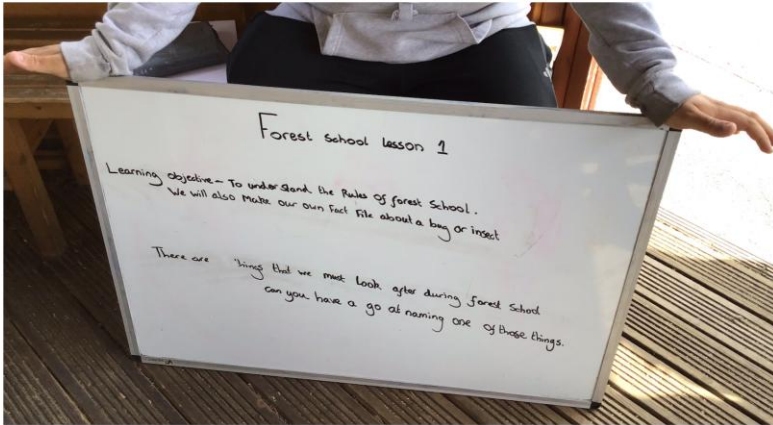 Forest School lesson 1
Learning objective – To understand the Rules of forest School.
We will also Make our own Fact File about a bug or insect
There are things that we must look after during forest School
can you have a go at naming one of those things.